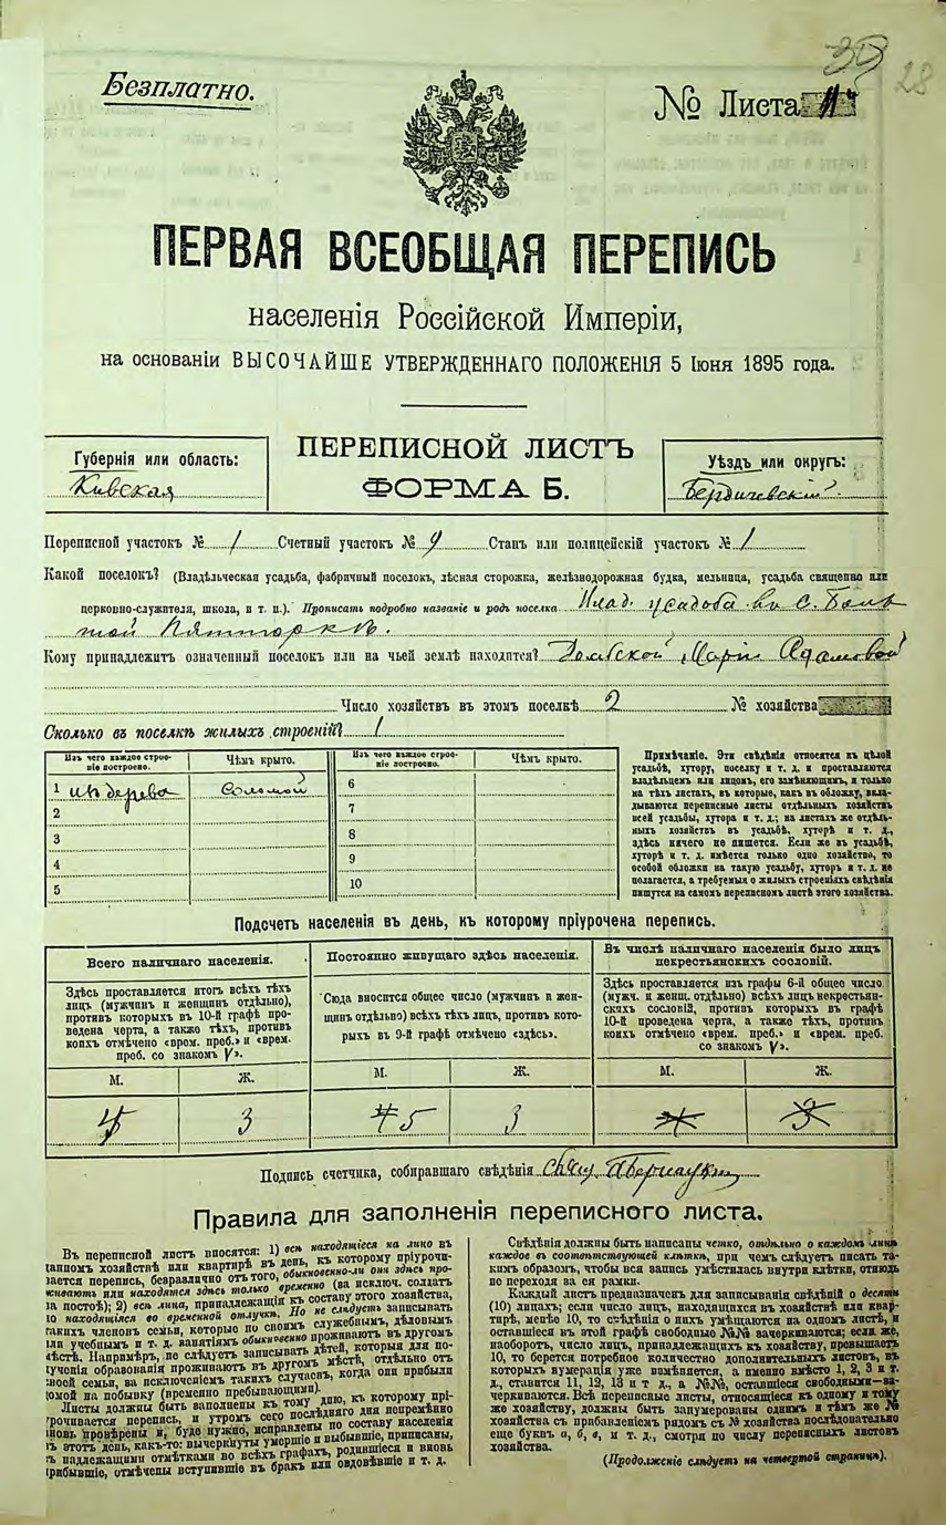 28
Безплатно.
№ Листа
ПЕРВАЯ ВСЕОБЩАЯ ПЕРЕПИСЬ
населенія Россійской Имперіи,
на основаніи ВЫСОЧАЙШЕ УТВЕРЖДЕННАГО ПОЛОЖЕНІЯ 5 Іюня 1895 года.
ПЕРЕПИСНОЙ ЛИСТЪ
ФОРМА Б.
Губернія или область:
Кивская
Уѣздъ или округъ:
Бердичевскій
Переписной участокъ № 1 Счетный участокъ № 9 Станъ или полицейскій участокъ № 1
Какой поселокъ? (Владѣльческая усадьба, фабричный поселокъ, лѣсная сторожка, желѣзнодорожная будка, мельница, усадьба священно или
церковно-служителя, школа, и т. п.). Прописать подробно названіе и родъ поселка усадьба въ с.
Кому принадлежитъ означенный поселокъ или на чьей землѣ находится? Маріи Адамовой
Число хозяйствъ въ этомъ поселкѣ 2 № хозяйства
Сколько въ поселкѣ жилыхъ строеній? 1
Изъ чего каждое строе-
ніе построено.
Чѣмъ крыто.
Изъ чего каждое строе-
ніе построено.
Чѣмъ крыто.
1 изъ дерева соломой
2
3
4
5
6
7
8
9
10
Примѣчаніе. Эти свѣдѣнія относятся къ цѣлой
усадьбѣ, хутору, поселку и т. д. и проставляются
владѣльцемъ или лицомъ, его замѣняющимъ, и только
на тѣхъ листахъ, въ которые, какъ въ обложку, вкла-
дываются переписные листы отдѣльныхъ хозяйствъ
всей усадьбы, хутора и т. д.; на листахъ же отдѣль-
ныхъ хозяйствъ въ усадьбѣ, хуторѣ и т. д.,
здѣсь ничего не пишется. Если же въ усадьбѣ,
хуторѣ и т. д. имѣется только одно хозяйство, то
особой обложки на такую усадьбу, хуторъ и т. д. не
полагается, а требуемыя о жилыхъ строеніяхъ свѣдѣнія
пишутся на самомъ переписномъ листѣ этого хозяйства.
Подсчетъ населенія въ день, къ которому пріурочена перепись.
Всего наличнаго населенія.
Здѣсь проставляется итогъ всѣхъ тѣхъ
лицъ (мужчинъ и женщинъ отдѣльно),
противъ которыхъ въ 10-й графѣ про-
ведена черта, а также тѣхъ, противъ
коихъ отмѣчено «врем. преб.» и «врем.
преб. со знакомъ V».
Постоянно живущаго здѣсь населенія.
Сюда вносится общее число (мужчинъ и жен-
щинъ отдѣльно) всѣхъ тѣхъ лицъ, противъ кото-
рыхъ въ 9-й графѣ отмѣчено «здѣсь».
Въ числѣ наличнаго населенія было лицъ
некрестьянскихъ сословій.
Здѣсь проставляется изъ графы 6-й общее число
(мужч. и женщ. отдѣльно) всѣхъ лицъ некрестьян-
скихъ сословій, противъ которыхъ въ графѣ
10-й проведена черта, а также тѣхъ, противъ
коихъ отмѣчено «врем. преб.» и «врем. преб.
со знакомъ V».
М. Ж. М. Ж. М. Ж.
3 5 3 3
Подпись счетчика, собиравшаго свѣдѣнія
Правила для заполненія переписного листа.
Въ переписной листъ вносятся: 1) всѣ находящіеся на лицо въ
данномъ хозяйствѣ или квартирѣ въ день, къ которому пріурочи-
вается перепись, безразлично отъ того, обыкновенно-ли они здѣсь про-
живаютъ или находятся здѣсь только временно (за исключ. солдатъ
на постоѣ); 2) всѣ лица, принадлежащія къ составу этого хозяйства,
но находящіяся во временной отлучкѣ. Но не слѣдуетъ записывать
такихъ членовъ семьи, которые по своимъ служебнымъ, дѣловымъ
или учебнымъ и т. д. занятіямъ обыкновенно проживаютъ въ другомъ
мѣстѣ. Напримѣръ, не слѣдуетъ записывать дѣтей, которыя для по-
лученія образованія проживаютъ въ другомъ мѣстѣ, отдѣльно отъ
своей семьи, за исключеніемъ такихъ случаевъ, когда они прибыли
домой на побывку (временно пребывающими).
Листы должны быть заполнены къ тому дню, къ которому прі-
урочивается перепись, и утромъ сего послѣдняго дня непремѣнно
вновь провѣрены и, буде нужно, исправлены по составу населенія
въ этотъ день, какъ-то: вычеркнуты умершіе и выбывшіе, приписаны,
съ надлежащими отмѣтками во всѣхъ графахъ, родившіеся и вновь
прибывшіе, отмѣчены вступившіе въ бракъ или овдовѣвшіе и т. д.
Свѣдѣнія должны быть написаны четко, отдѣльно о каждомъ лицѣ
каждое въ соотвѣтствующей клѣткѣ, при чемъ слѣдуетъ писать та-
кимъ образомъ, чтобы вся запись умѣстилась внутри клѣтки, отнюдь
не переходя за ея рамки.
Каждый листъ предназначенъ для записыванія свѣдѣній о десяти
(10) лицахъ; если число лицъ, находящихся въ хозяйствѣ или квар-
тирѣ, менѣе 10, то свѣдѣнія о нихъ умѣщаются на одномъ листѣ, и
оставшіеся въ этой графѣ свободные №№ зачеркиваются; если же,
наоборотъ, число лицъ, принадлежащихъ къ хозяйству, превышаетъ
10, то берется потребное количество дополнительныхъ листовъ, въ
которыхъ нумерація уже измѣняется, а именно вмѣсто 1, 2, 3 и т.
д., ставится 11, 12, 13 и т. д., а №№, оставшіеся свободными—за-
черкиваются. Всѣ переписные листы, относящіеся къ одному и тому
же хозяйству, должны быть занумерованы однимъ и тѣмъ же №
хозяйства съ прибавленіемъ рядомъ съ № хозяйства послѣдовательно
еще буквъ а, б, в, и т. д., смотря по числу переписныхъ листовъ
хозяйства.
(Продолженіе слѣдуетъ на четвертой страницѣ).